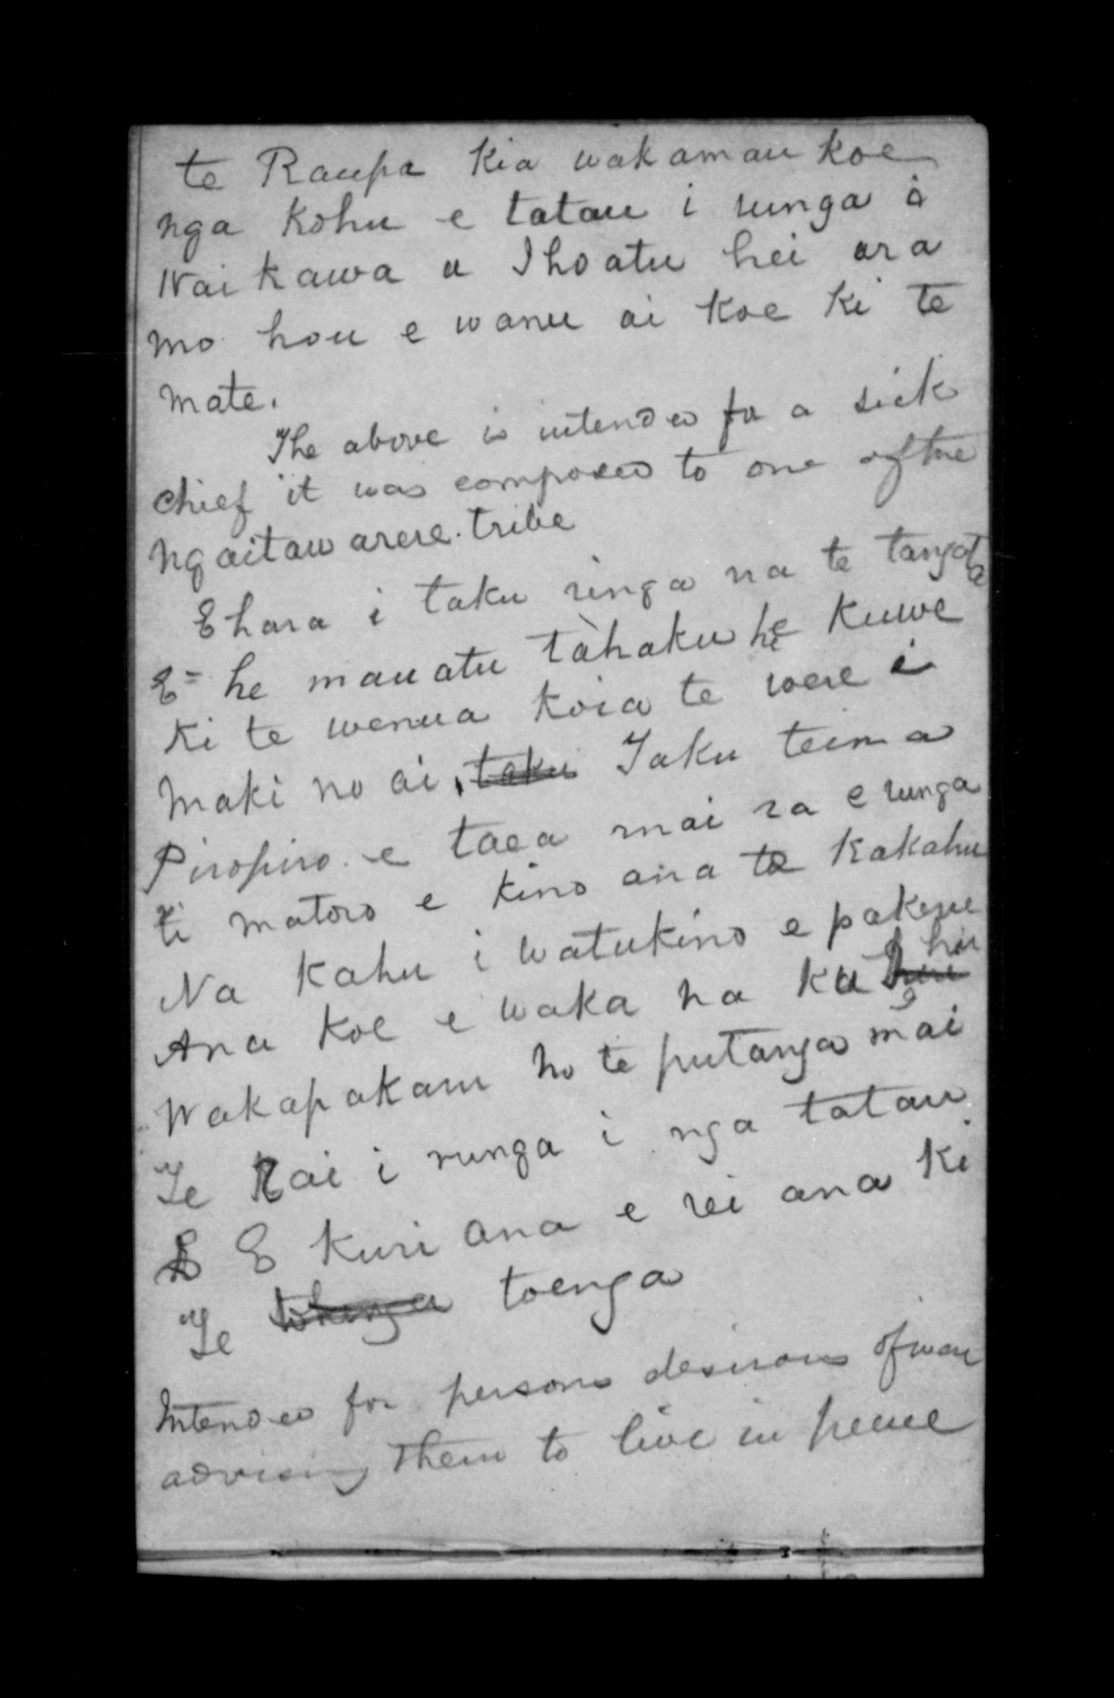 te Raupa Kia wakamau koe
nga Kohu e tatau i runga i
Wai kawa u Ihoatu hei ara
mo hou e wanu ai koe ki te
mate.
The above is intended for a sick
chief it was composed to one of the
ngaitawarere. tribe
Ehara i taku ringa na te tangata
E= he mau atu tàhaku he Kuwe
ki te wenua koia te were i
maki no ai, taku Taku teina
Piropiro e taea mai ra e runga
ti matoro e kino ana te Kakahu
Na Kahu i watukino e pakeru
Ana koe e waka na ku hu
Wakapakaru no te putanga mai
Te Rai i runga i nga tatau
E Kuri ana e rei ana ki
Te toenga
Intended for persons desirous of war
advising them to live in peace